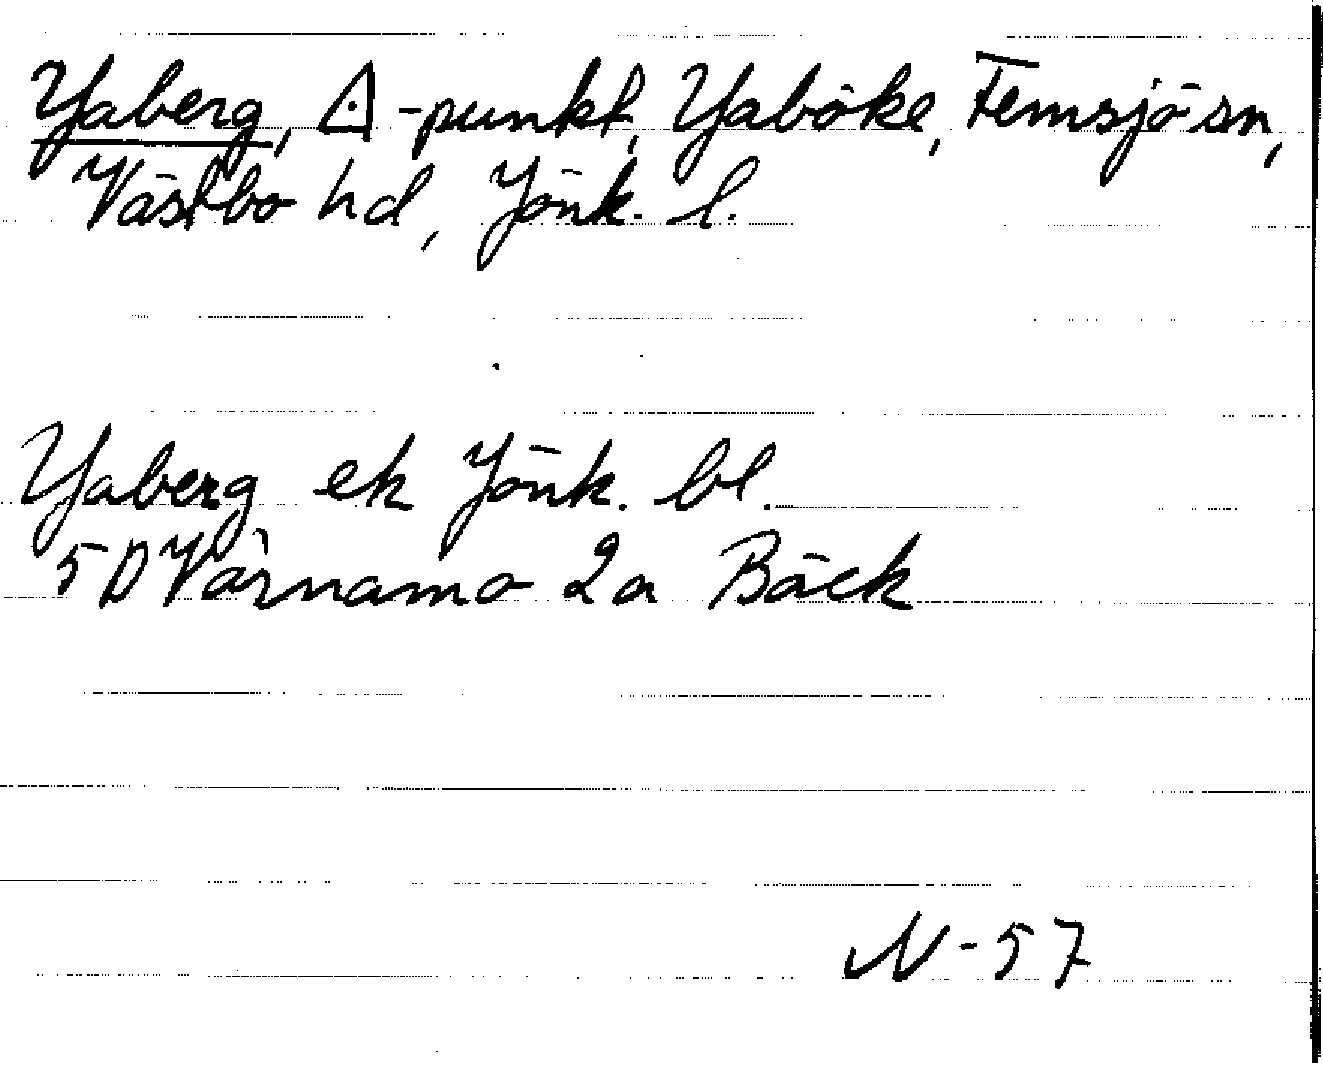 Yaberg, ⊿-punkt, Yaböke, Femsjö sn,
Västbo hd, Jönk. l.
Yaberg ek Jönk. bl.
5D Värnamo 2a Bäck
N-57